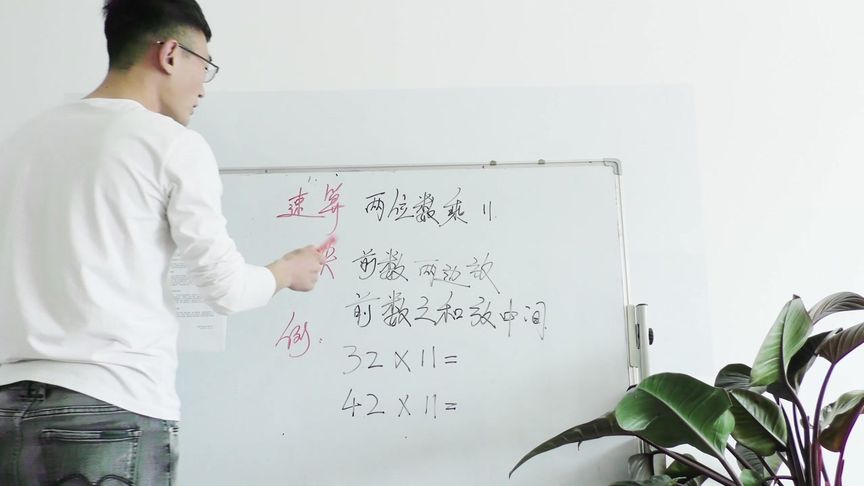 速算 两位数乘11
前数两边放
前数之和放中间
例:
32×11=
42×11=